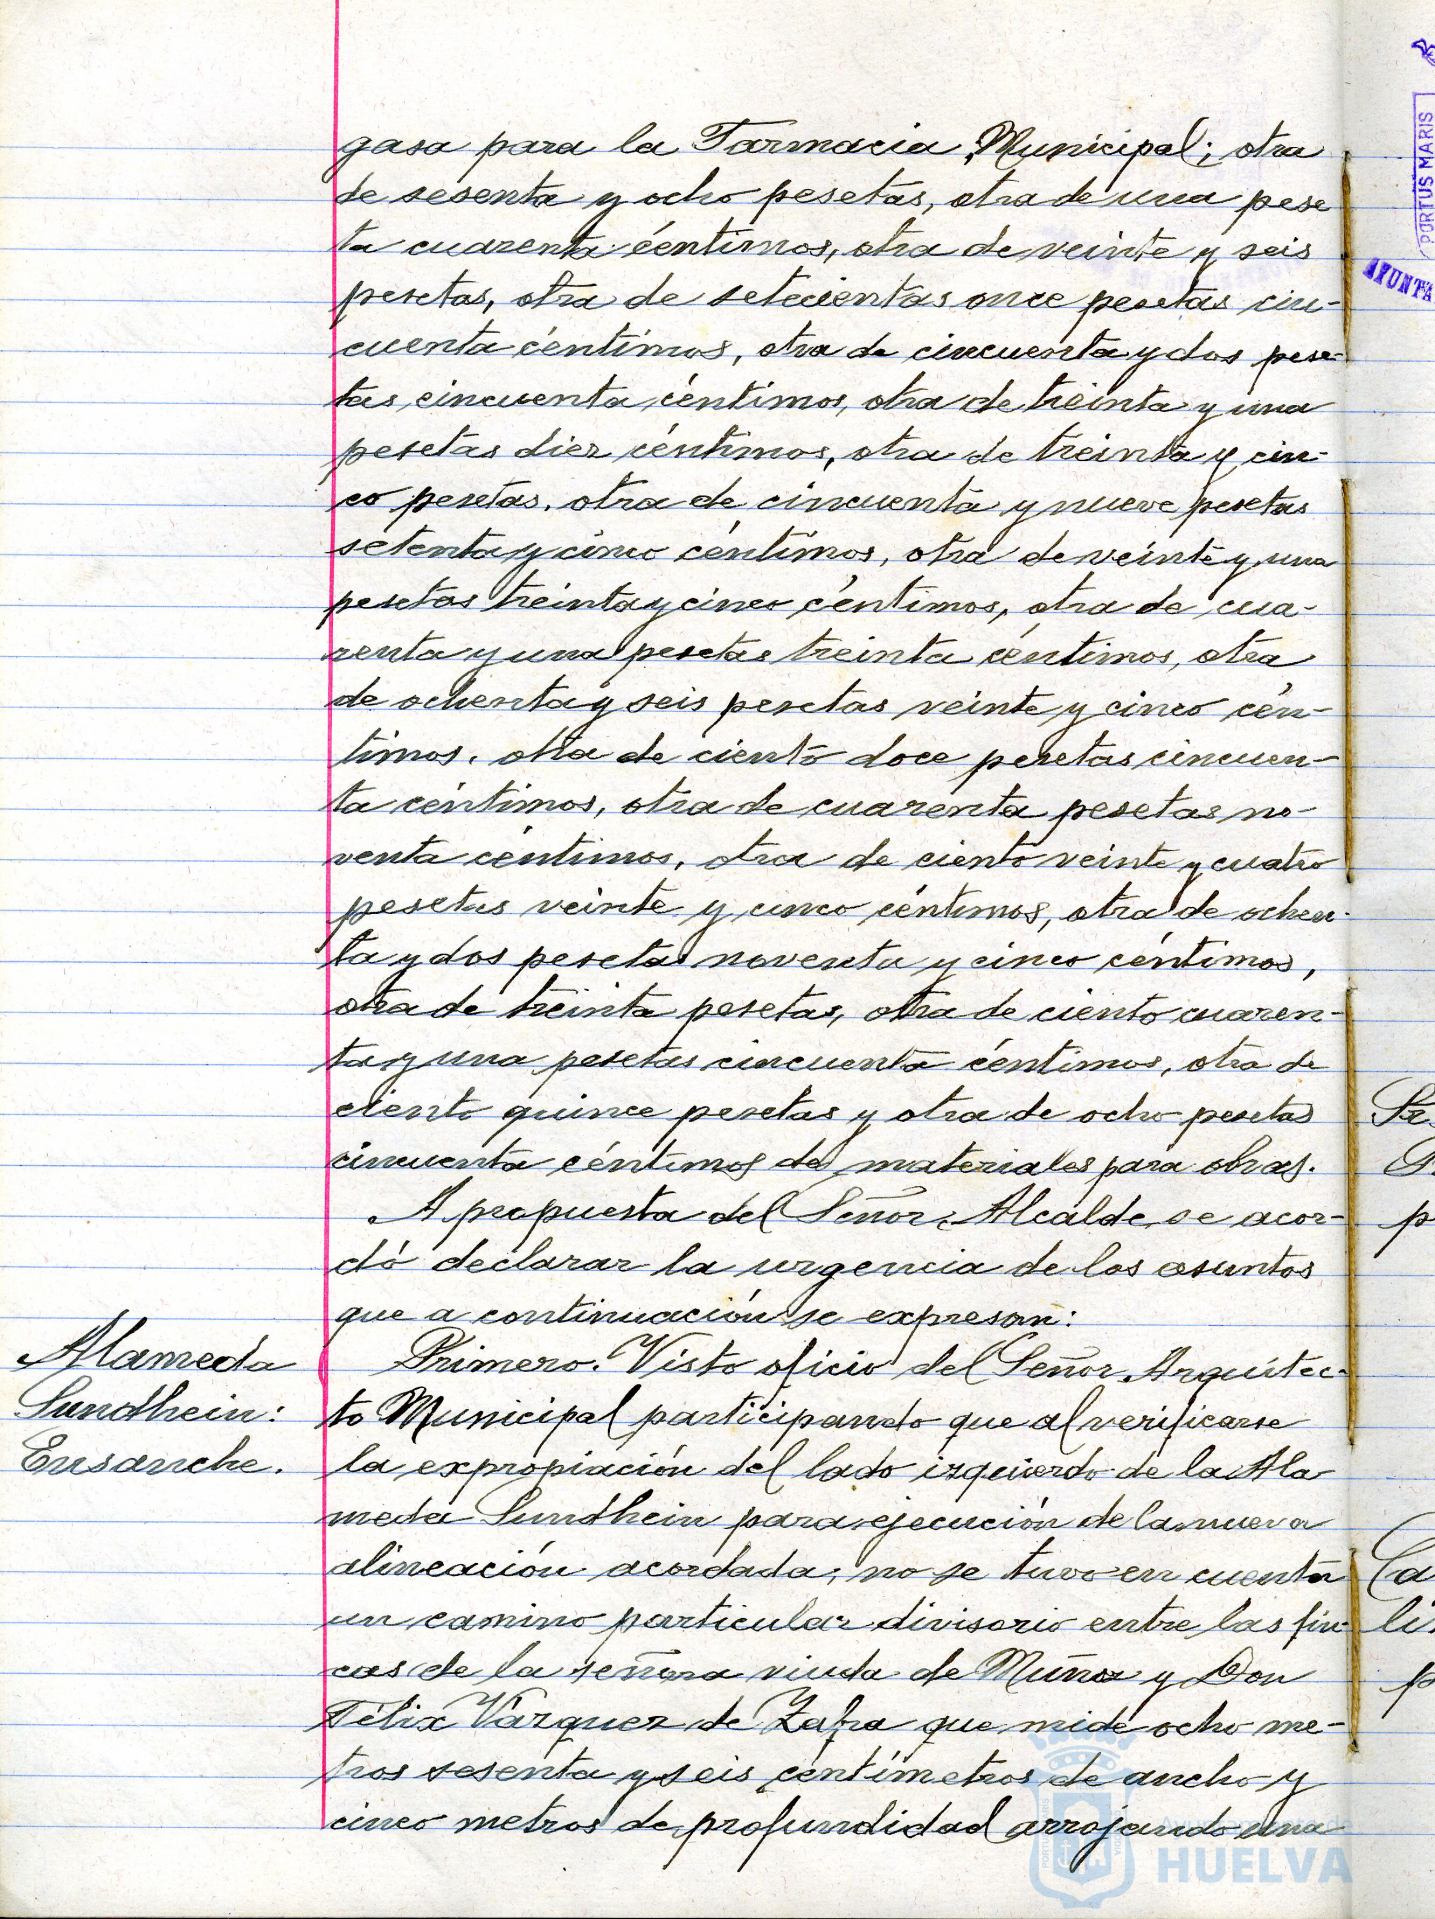 gasa para la Farmacia Municipal; otra
de sesenta y ocho pesetas, otra de una pese
ta cuarenta céntimos, otra de veinte y seis
pesetas, otra de setecientas once pesetas cin-
cuenta céntimos, otra de cincuenta y dos pese-
tas cincuenta céntimos, otra de treinta y una
pesetas diez céntimos, otra de treinta y cin-
co pesetas, otra de cincuenta y nueve pesetas
setenta y cinco céntimos, otra de veinte y una
pesetas treinta y cinco céntimos, otra de cua-
renta y una pesetas treinta céntimos, otra
de ochenta y seis pesetas veinte y cinco cén-
timos, otra de ciento doce pesetas cincuen-
ta céntimos, otra de cuarenta pesetas no-
venta céntimos, otra de ciento veinte y cuatro
pesetas veinte y cinco céntimos, otra de ochen-
ta y dos pesetas noventa y cinco céntimos,
otra de treinta pesetas, otra de ciento cuaren-
ta y una pesetas cincuenta céntimos, otra de
ciento quince pesetas y otra de ocho pesetas
cincuenta céntimos de materiales para obras.
A propuesta del Señor Alcalde se acor-
dó declarar la urgencia de los asuntos
que a continuación se expresan:
Alameda
Sundhein:
Ensanche.
Primero. Visto oficio del Señor Arquitec-
to Municipal participando que al verificarse
la expropiación del lado izquierdo de la Ala
meda Sundhein para ejecución de la nueva
alineación acordada, no se tuvo en cuenta
un camino particular divisorio entre las fin-
cas de la señora viuda de Muñoz y Don
Félix Vázquez de Zafra que mide ocho me-
tros sesenta y seis céntímetros de ancho y
cinco metros de profundidad arrojando una
PORTUS MARIS
AYUNTA
HUELVA